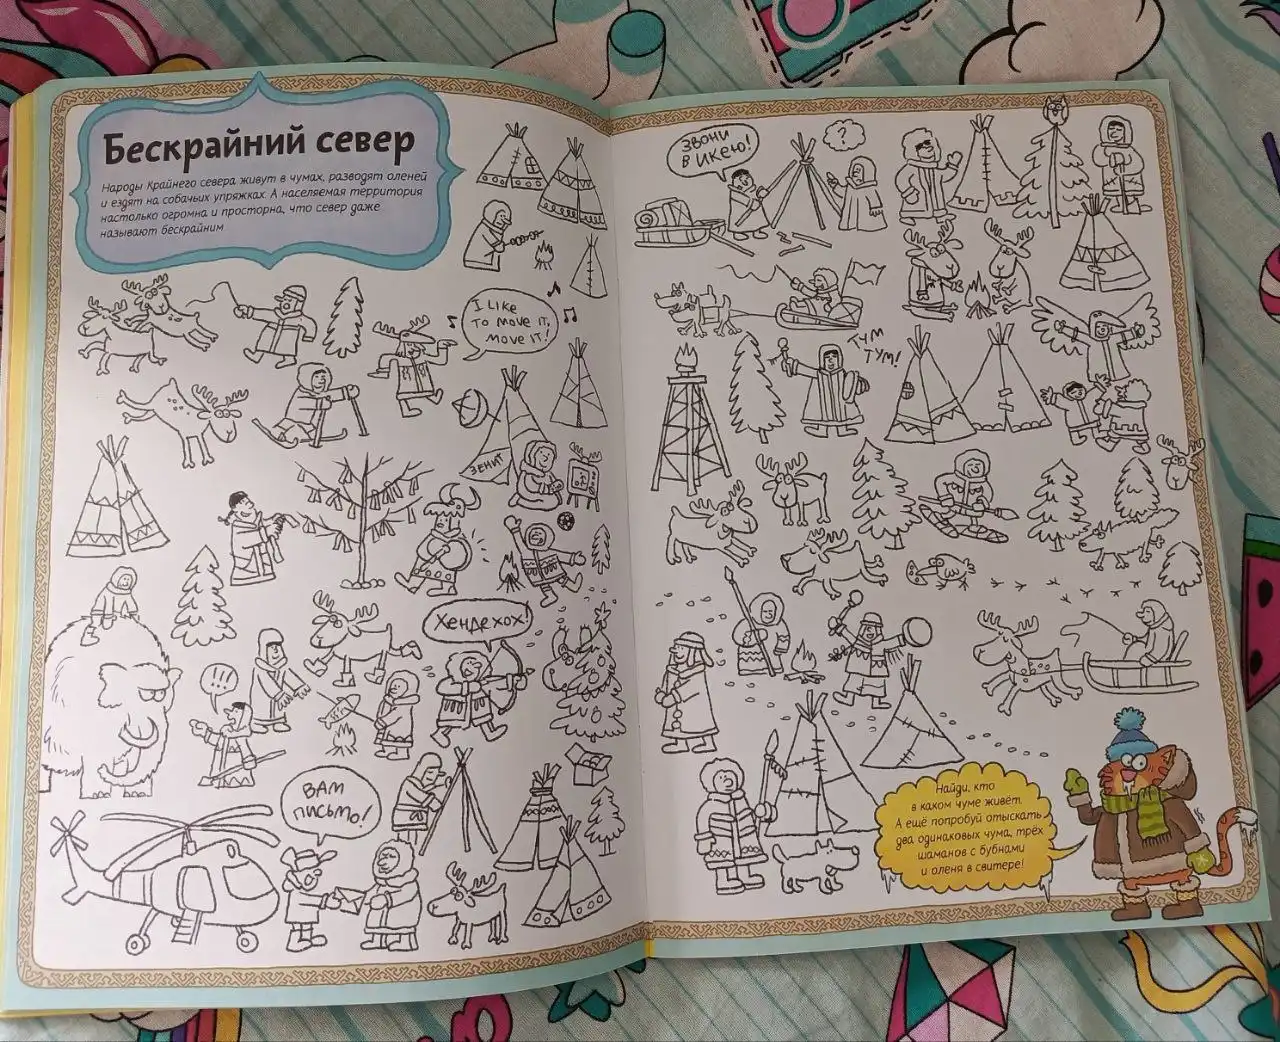 Бескрайний север
Народы Крайнего севера живут в чумах, разводят оленей
и ездят на собачьих упряжках. А населяемая территория
настолько огромна и просторна, что север даже
называют бескрайним
I LIKE
TO MOVE IT,
MOVE IT!
ЗЕНИТ
ХЕНДЕ ХОХ!
!!!
ВАМ
ПИСЬМО!
ЗВОНИ
В ИКЕЮ!
?
ТУМ
ТУМ!
Найди, кто
в каком чуме живёт.
А ещё попробуй отыскать
два одинаковых чума, трёх
шаманов с бубнами
и оленя в свитере!